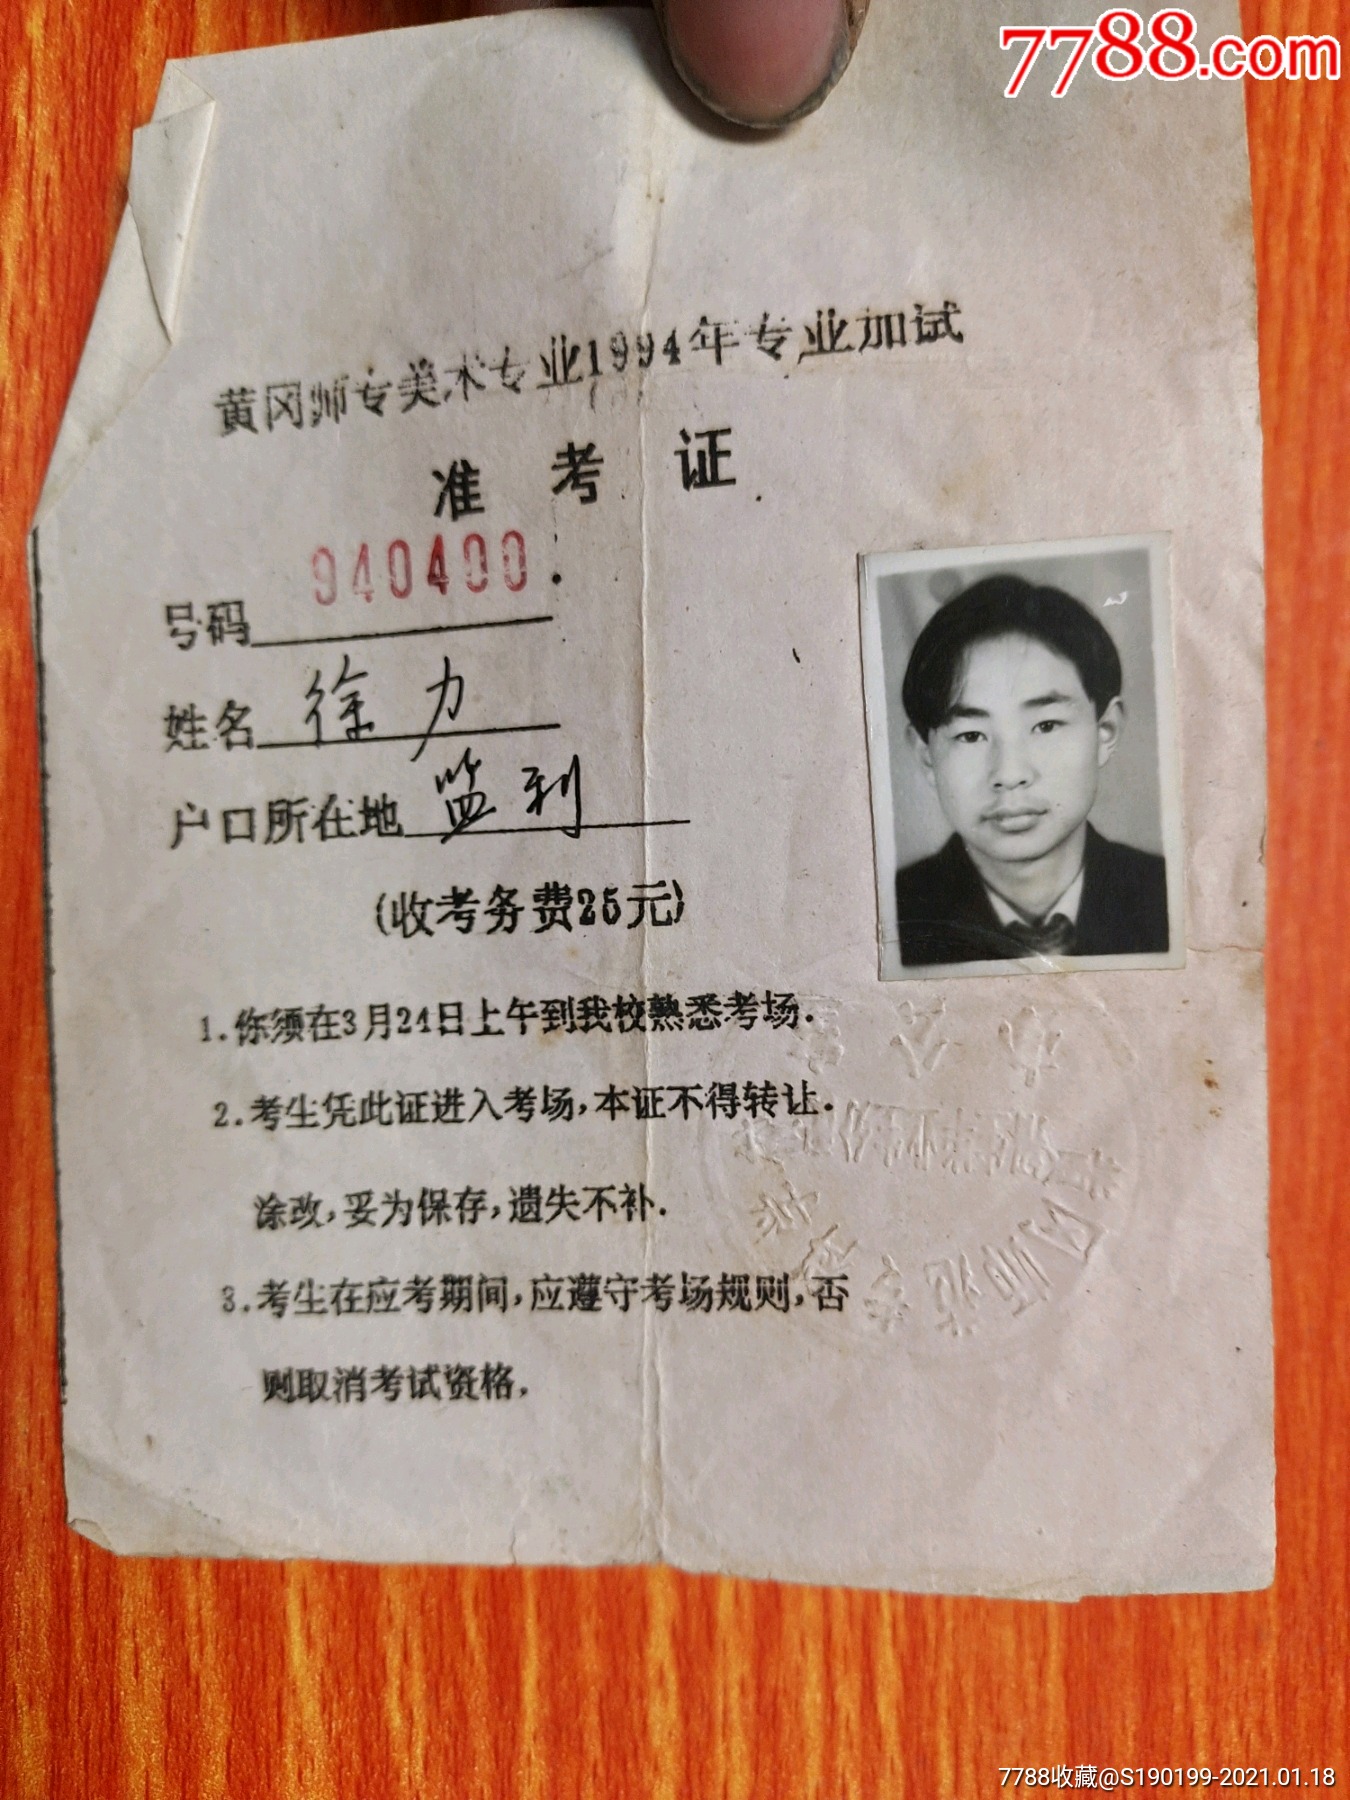 7788.com
黄冈师专美术专业1994年专业加试
准考证
940400
号码
姓名 徐力
户口所在地 监利
(收考务费25元)
1.你须在3月24日上午到我校熟悉考场.
2.考生凭此证进入考场,本证不得转让.
涂改,妥为保存,遗失不补.
3.考生在应考期间,应遵守考场规则,否
则取消考试资格.
7788收藏@S190199-2021.01.18